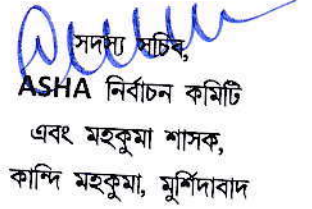 সদস্য সচিব,
ASHA নির্বাচন কমিটি
এবং মহকুমা শাসক,
কান্দি মহকুমা, মুর্শিদাবাদ